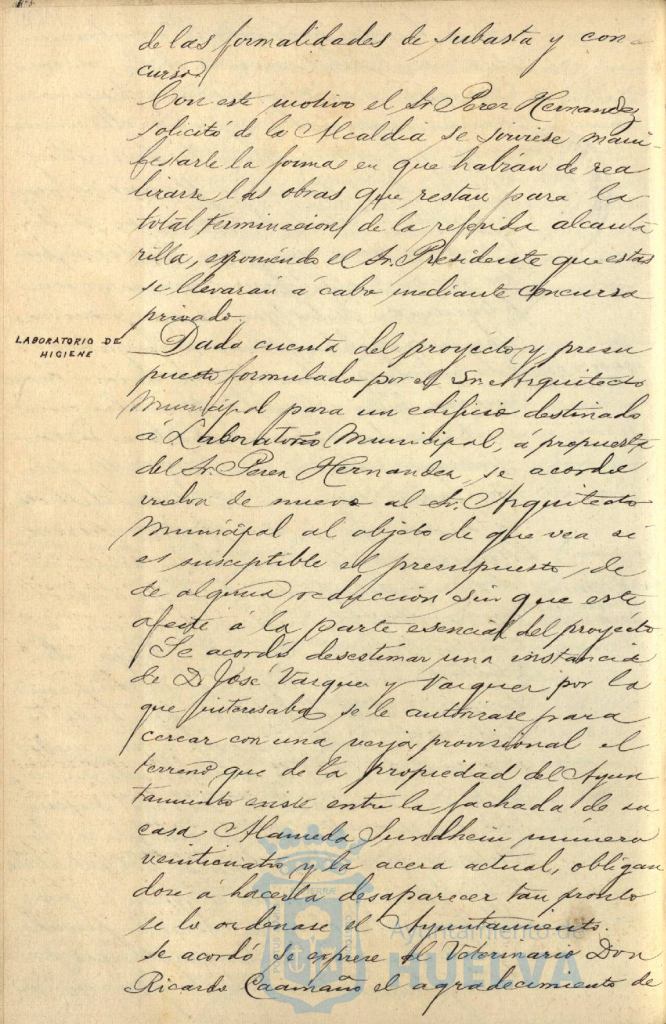 de las formalidades de subasta y con-
curso.
Con este motivo el Sr Perez Hernandez
solicitó de la Alcaldia se sirviese mani-
festarle la forma en que habian de rea
lizarse las obras que restan para la
total terminacion de la referida alcanta
rilla, exponiendo el Sr. Presidente que estas
se llevaran á cabo mediante concurso
privado.
LABORATORIO DE
HIGIENE
Dada cuenta del proyecto y presu
puesto formulado por el Sr. Arquitecto
Municipal para un edificio destinado
á Laboratorio Municipal, á propuesta
del Sr. Perez Hernandez, se acordó
vuelva de nuevo al Sr. Arquitecto
Municipal al objeto de que vea si
es susceptible el presupuesto, de
de alguna reduccion sin que esta
afecte á la parte esencial del proyecto
Se acordó desestimar una instancia
de D. José Vazquez y Vazquez por la
que interesaba se le autorizase para
cercar con una verja provisional el
terreno que de la propiedad del Ayun
tamiento existe entre la fachada de su
casa Alameda Sundheim numero
veinticuatro y la acera actual, obligan
dose á hacerla desaparecer tan pronto
se lo ordenase el Ayuntamiento.
se acordó se exprese al Veterinario Don
Ricardo Caamaño el agradecimiento de
Ayuntamiento de
HUELVA